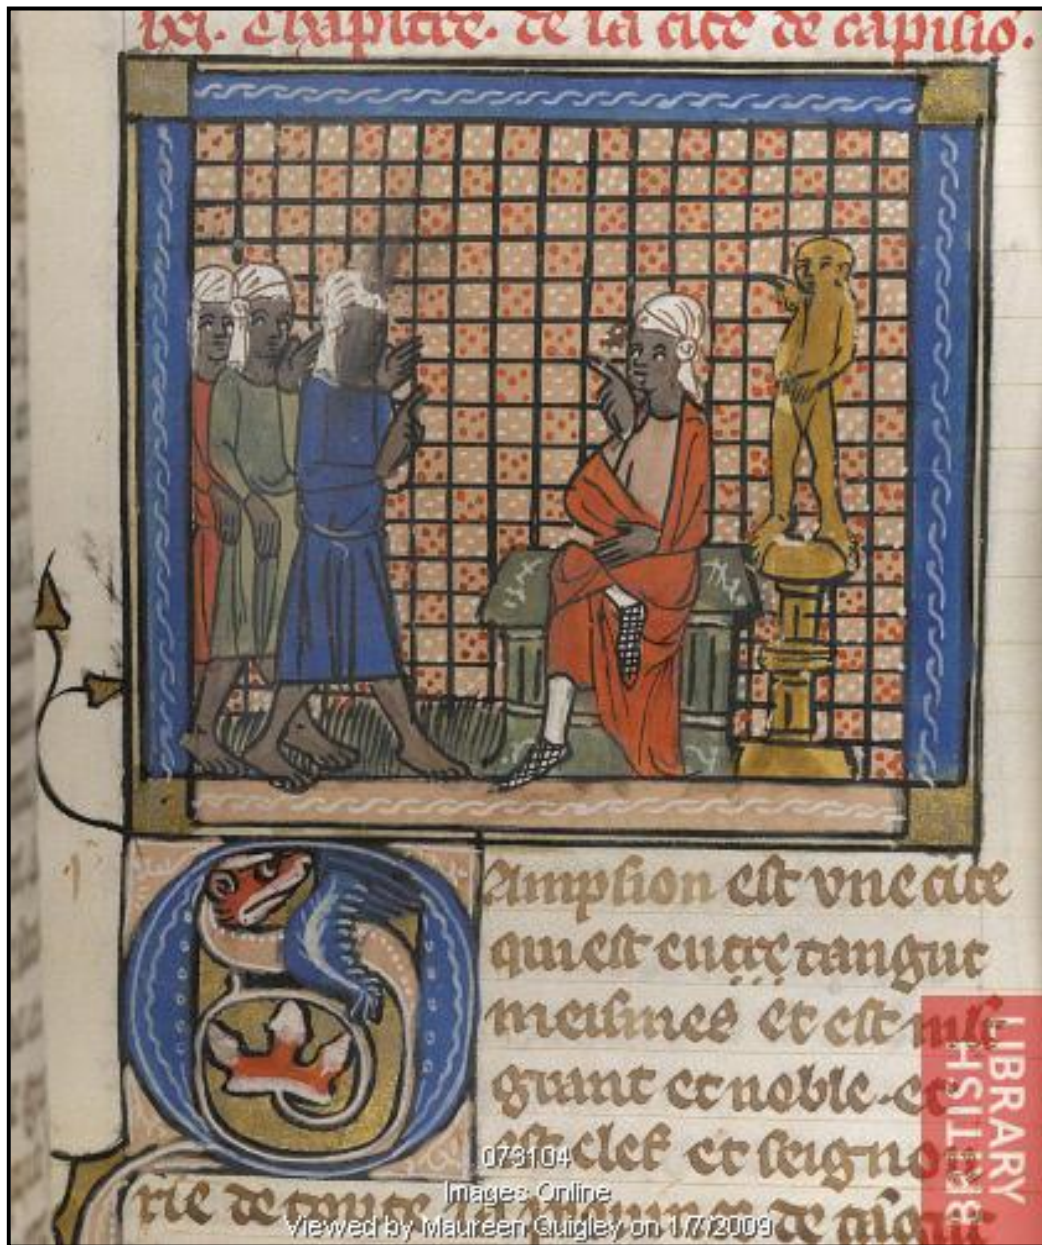 lxi. Chapitre. de la cite de capisio.
Campsion est vne cite
qui est entre tangut
meismes et est mlt
grant et noble. et
est clef et seigno
rie de toute la prouince de
073104
Images Online
Viewed by Maureen Quigley on 1/7/2009
BRITISH
LIBRARY